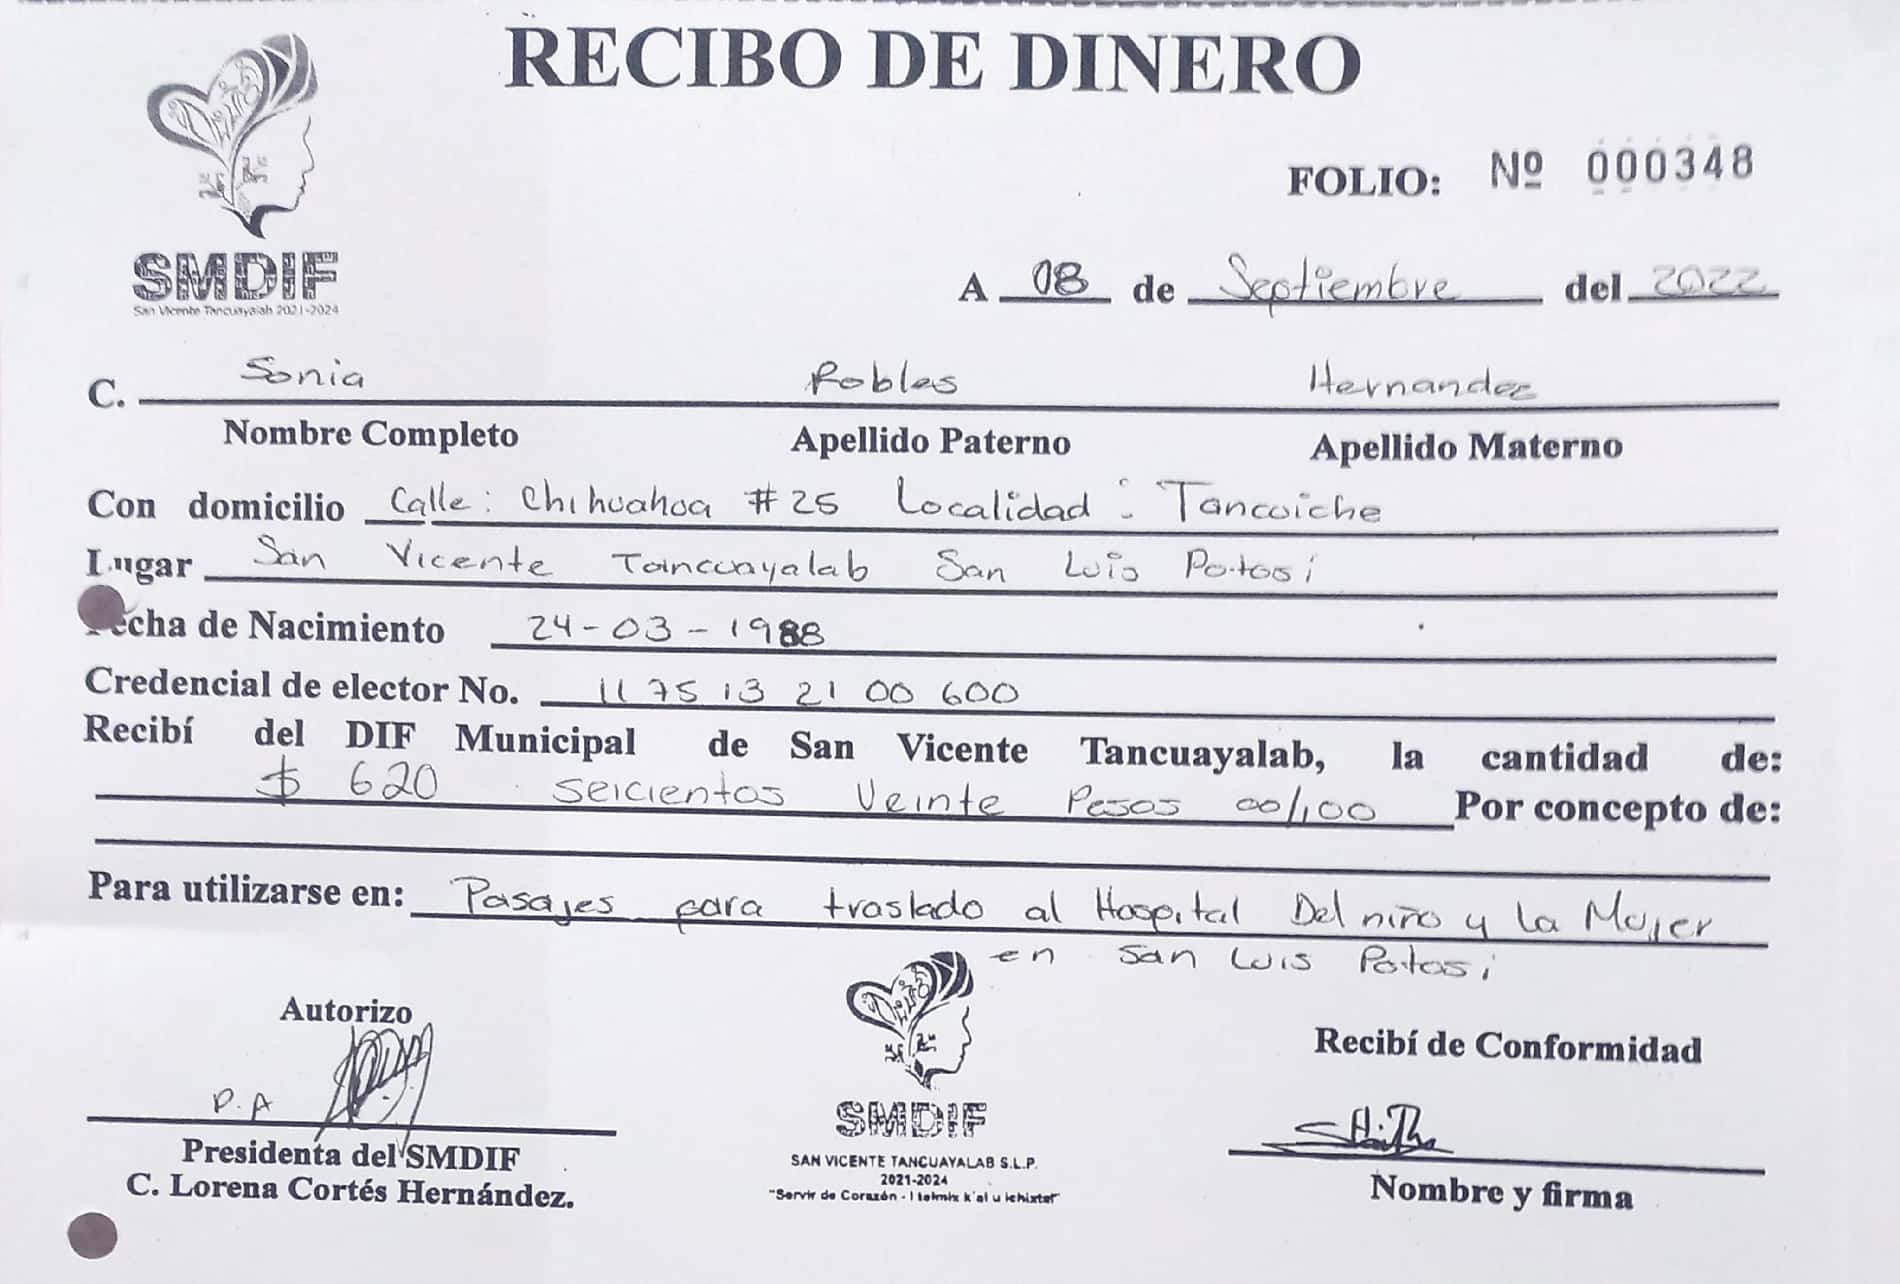 RECIBO DE DINERO
FOLIO: Nº 000348
SMDIF
San Vicente Tancuayalab 2021-2024
A 08 de Septiembre del 2022
C. Sonia Robles Hernandez
Nombre Completo Apellido Paterno Apellido Materno
Con domicilio Calle: Chihuahua #25 Localidad: Tancuiche
Lugar San Vicente Tancuayalab San Luis Potosi
Fecha de Nacimiento 24-03-1988
Credencial de elector No. 11 75 13 21 00 600
Recibí del DIF Municipal de San Vicente Tancuayalab, la cantidad de:
$ 620 Seicientos Veinte Pesos 00/100 Por concepto de:
Para utilizarse en: Pasajes para traslado al Hospital Del niño y la Mujer
en San Luis Potosi
Autorizo
Recibí de Conformidad
P.A
SMDIF
Presidenta del SMDIF
C. Lorena Cortés Hernández.
SAN VICENTE TANCUAYALAB S.L.P.
2021-2024
"Servir de Corazón -
Nombre y firma